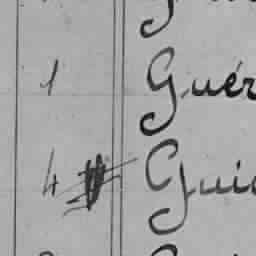 1 Guér
4 Gui